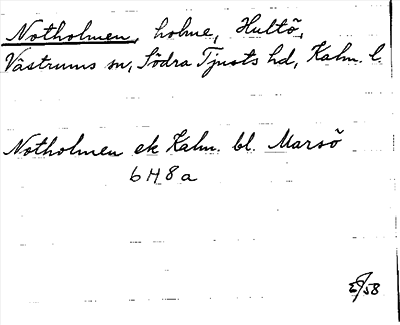 Notholmen, holme, Hultö,
Västrums sn, Södra Tjusts hd, Kalm. l.
Notholmen ek Kalm. bl. Marsö
6H8a
/58